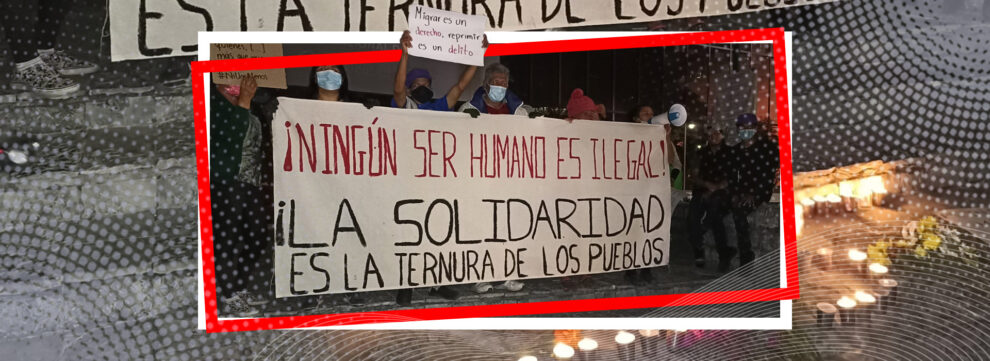 ES LA TERNURA DE LOS PUEBLOS
Migrar es un
derecho, reprimir
es un delito
quienes,
mas que
¡NINGÚN SER HUMANO ES ILEGAL!
¡LA SOLIDARIDAD
ES LA TERNURA DE LOS PUEBLOS